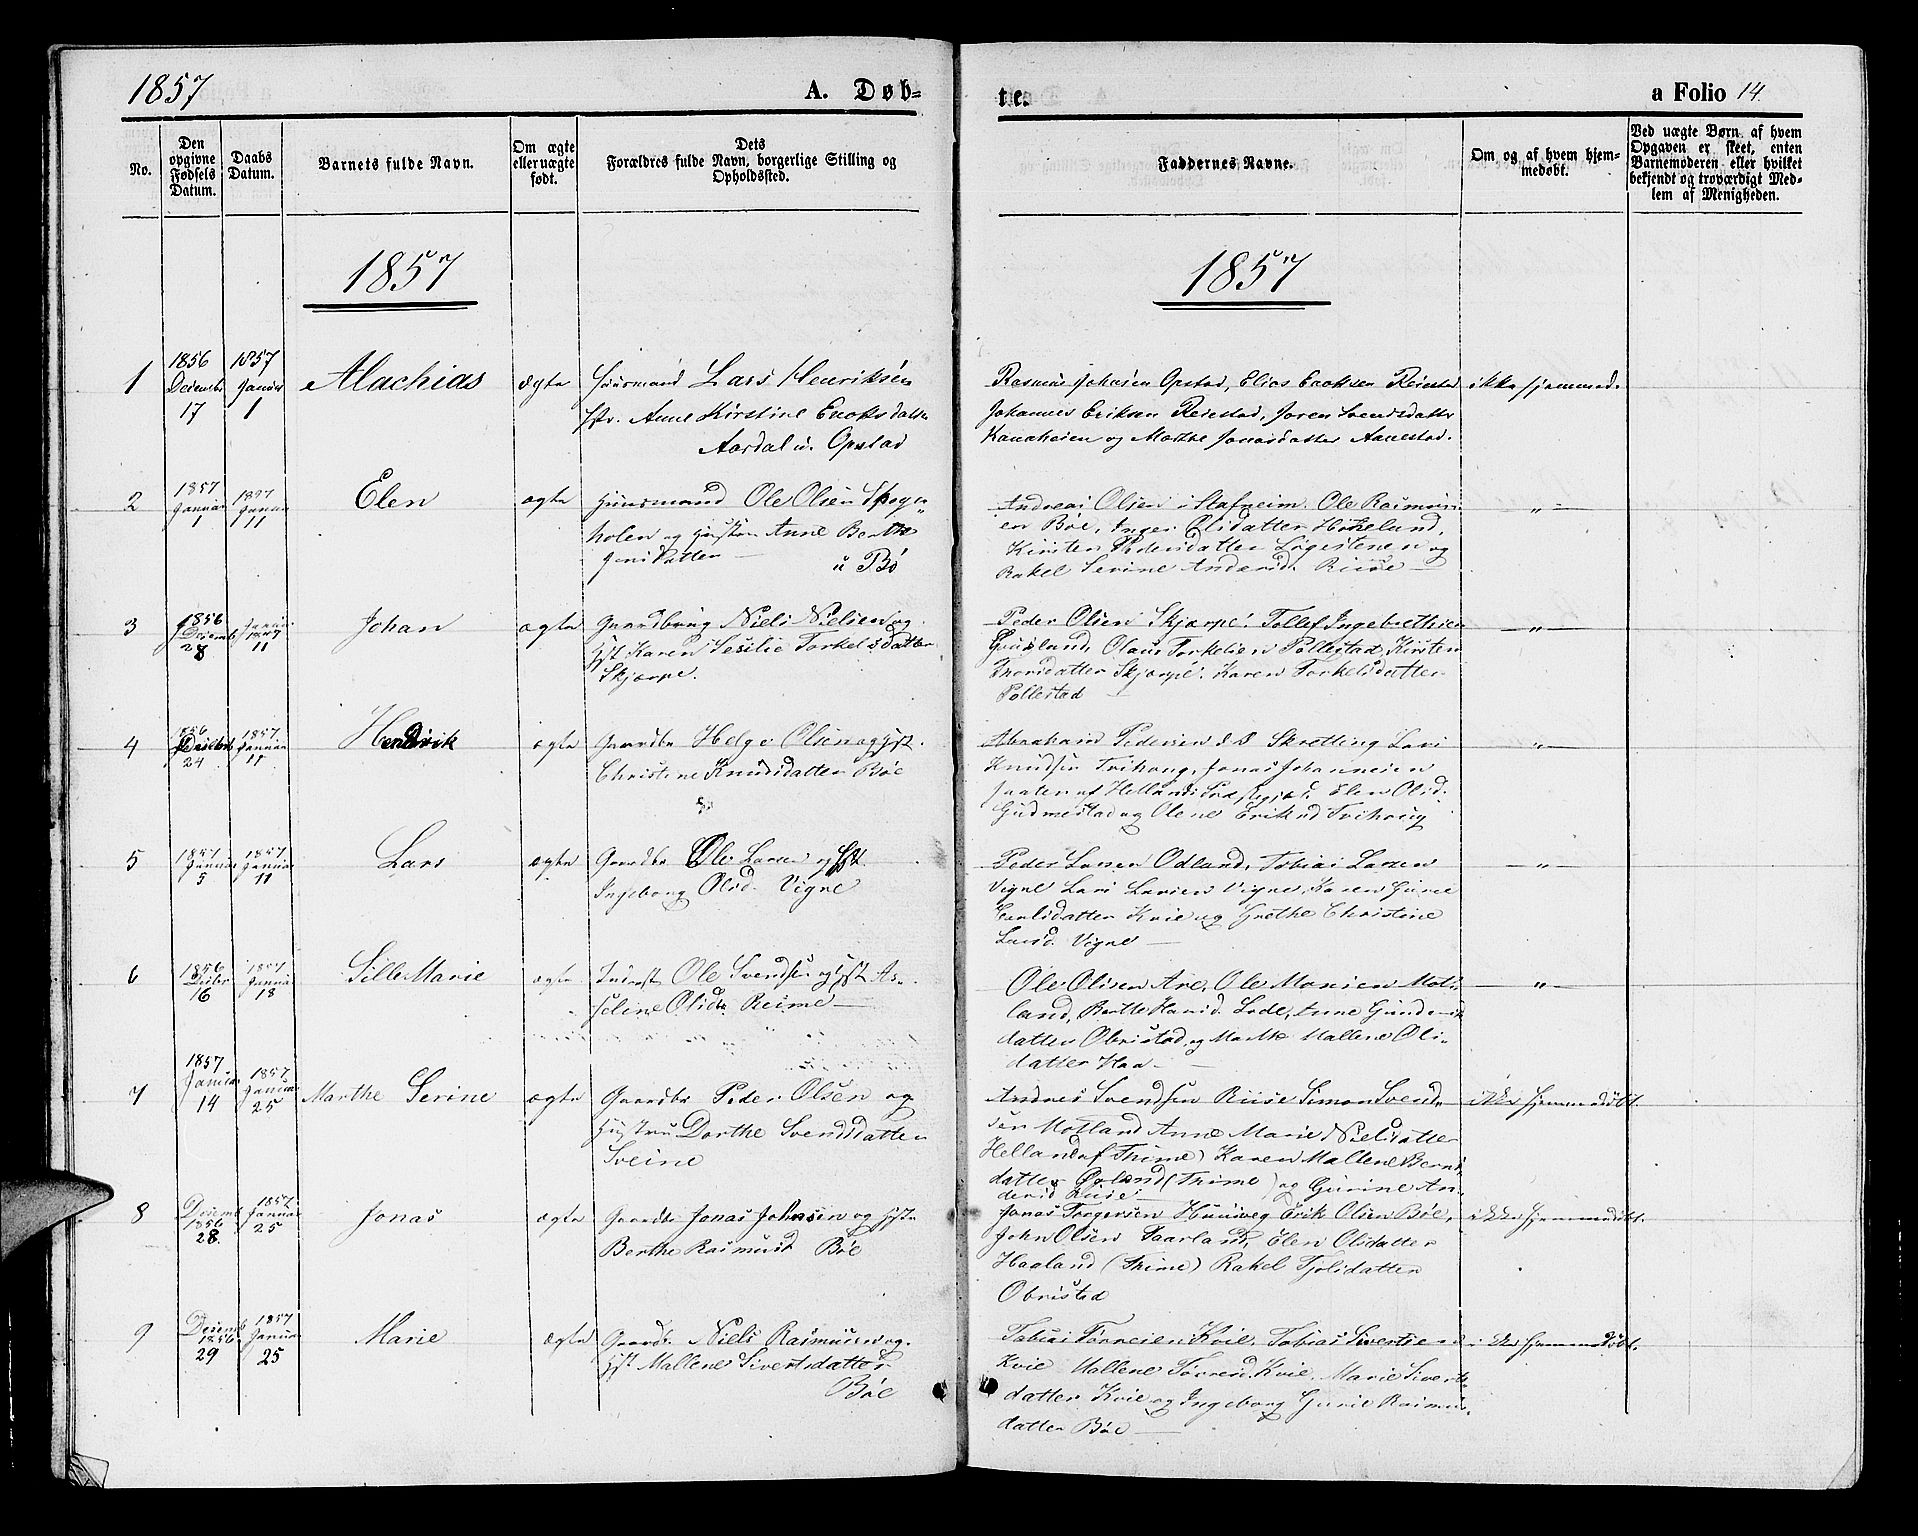 1857
A. Døb-
te.
a Folio 14.
No.
Den opgivne Fødsels Datum.
Daabs Datum.
Barnets fulde Navn.
Om ægte eller uægte født.
Dets Forældres fulde Navn, borgerlige Stilling og Opholdssted.
Faddernes Navne.
Om og af hvem hjem-
medøbt.
Ved uægte Børn af hvem
Opgaven er skeet, enten
Barnemoderen eller hvilket
bekjendt og troværdigt Med-
lem af Menigheden.
1857
1857
1
1856 Decembr 17
1857 Januar 1
Malachias
ægte
Huusmand Lars Henriksen
Hstr. Anne Kirstine Enoksdatter
Aardal u. Opstad
Rasmus Johnsen Opstad, Elias Enoksen Reiestad
Johannes Eriksen Reiestad, Soren Svendsdatter
Kanaheien og Marthe Jonasdatter Aanestad.
ikke hjemmed.
2
1857 Januar 1
1857 Januar 11
Elen
ægte
Huusmand Ole Olsen
holen og Hustru Anne Berthe
Jonsdatter
u Bø
Andreas Olsen Stafneim. Ole Rasmus-
en Bøe, Inger Olsdatter Hokeland,
Kirsten Pedersdatter og
Rakel Serine Andersd. Riise
"
3
1856 Decemb 28
Januar 1857 11
Johan
ægte
Gaardbrug Niels Nielsen og
Hst Karen Sesilie Torkelsdatter
Skjærpe.
Peder Olsen Skjærpe. Tollef Ingebrethsen
Grødeland, Olaus Torkelsen Pollestad, Kirsten
Thorsdatter Skjærpe. Karen Torkelsdatter
Pollestad
"
4
1856 Decbr 24
1857 Januar 11
Hendrik
ægte
Gaardbr Helge Olsen og Hst.
Christine Knudsdatter Bøe
Abraham Pedersen Skretting Lars
Knudsen Tvihoug, Jonas Johannesen
af Helland Elen Olsd.
Gudmestad og Olene Eriksd Tvihoug
"
5
1857 Januar 5
1857 Januar 11
Lars
ægte
Gaardbr Ole Larsen og Hst
Ingeborg Olsd. Vigre
Peder Larsen Odland, Tobias Larsen
Vigre Lars Larsen Vigre, Karen Gurie
Carlsdatter Kvie og Grethe Christine
Larsd. Vigre
"
6
1856 Decbr 16
1857 Januar 18
Sille Marie
ægte
Inderst Ole Svendsen og Hst As-
seline Olsdtr. Reime
Ole Olsen Are, Ole Monsen Mot-
land, Berthe Hansd. Lode, Anne Gunders-
datter Obrestad, og Marthe Mallene Ols-
datter Haa
"
7
1857 Januar 14
1857 Januar 25
Marthe Serine
ægte
Gaardbr Peder Olsen og
Hustru Dorthe Svendsdatter
Sveine
Andres Svendsen Riise Simon Svend-
sen Motland Anne Marie Nielsdatter
Helland (af Thime) Karen Mallene Bernt-
datter (Thime) og Gurine An-
dersd Riise
ikke hjemmedøbt.
8
Decemb 1856 28.
1857. Januar 25
Jonas
ægte
Gaardbr Jonas Johnsen og Hstr
Berthe Rasmusd Bøe
Jonas Torgersen Erik Olsen Bøe,
John Olsen Haarland, Elen Olsdatter
Haaland (Thime) Rakel Tjølsdatter
Obrestad
ikke hjemmedøbt.
9
Decemb 1856 29
1857 Januar 25
Marie
ægte
Gaardbr Niels Rasmussen og.
Hst Mallene Sivertsdatter
Bøe
Tobias Tørresen Kvie, Tobias Sivertsen
Kvie Mallene Tørresd. Kvie. Marie Siverts-
datter Kvie og Ingeborg Gurie Rasmus-
datter Bøe
ikke hjemmedøbt.